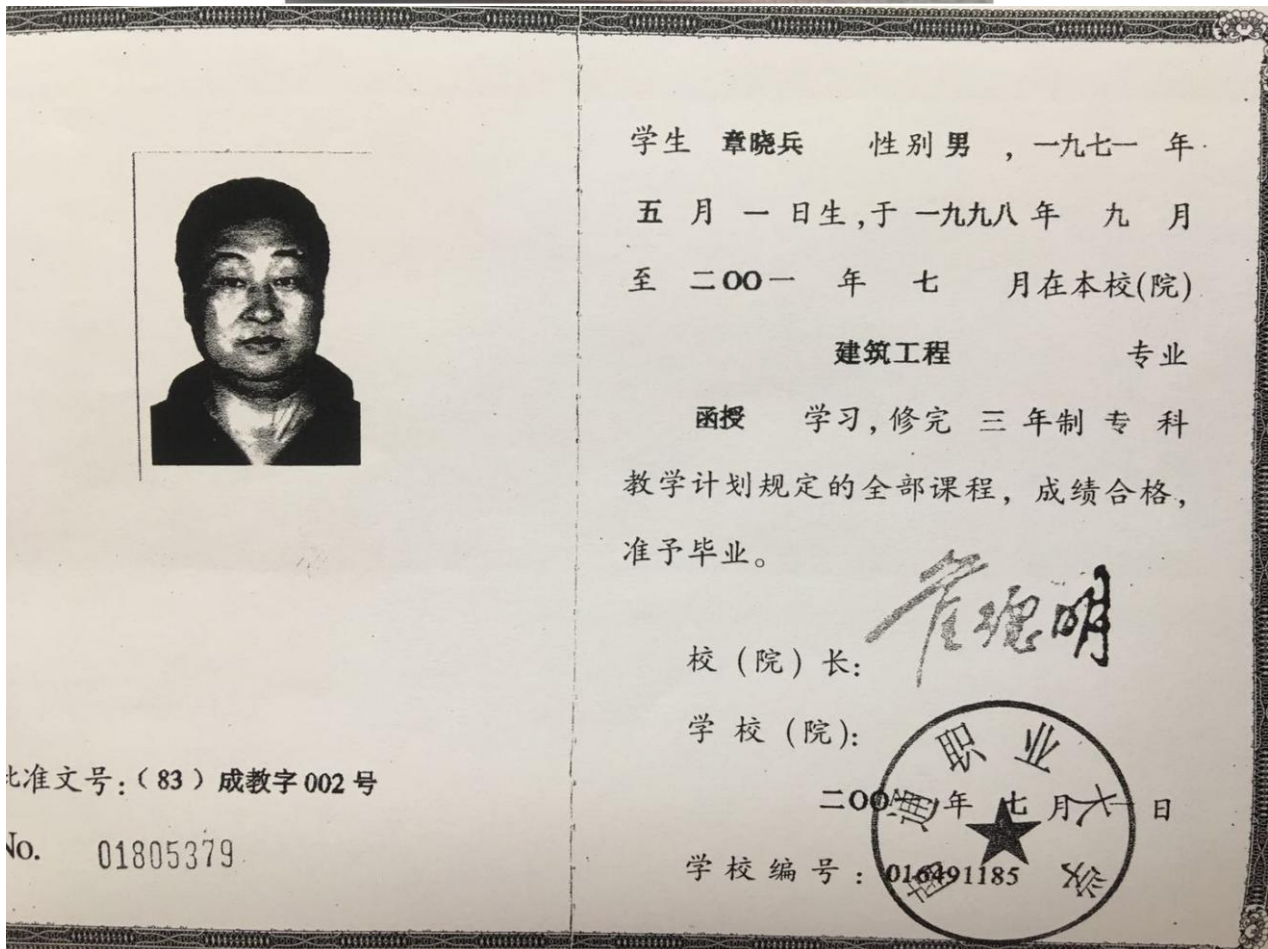 批准文号:(83)成教字002号
No. 01805379
学生 章晓兵 性别 男 ,一九七一 年
五 月 一 日生,于 一九九八 年 九 月
至 二OO一 年 七 月在本校(院)
建筑工程 专业
函授 学习,修完 三 年制 专 科
教学计划规定的全部课程,成绩合格,
准予毕业。
校(院)长:
学校(院):
南通职业大学
二OO 年 七 月 日
学校编号:016491185